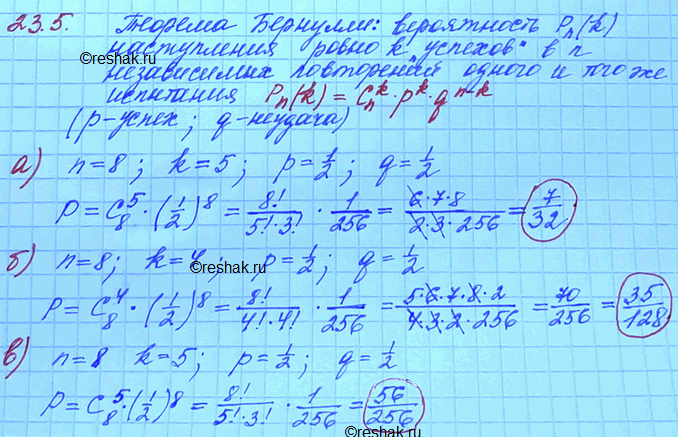 23.5. Теорема Бернулли: вероятность Pₙ(k)
наступления ровно k „успехов" в n
независимых повторений одного и того же
испытания Pₙ(k) = Cₙᵏ · pᵏ · qⁿ⁻ᵏ
(p-успех ; q-неудача)
а) n=8 ; k=5 ; p=1/2 ; q=1/2
P = C₈⁵ · (1/2)⁸ = 8!/(5!·3!) · 1/256 = (6·7·8)/(2·3·256) = 7/32
© reshak.ru
б) n=8; k=4 ; p=1/2 ; q=1/2
P = C₈⁴ · (1/2)⁸ = 8!/(4!·4!) · 1/256 = (5·6·7·8·2)/(4·3·2·256) = 70/256 = 35/128
в) n=8 k=5; p=1/2 ; q=1/2
P = C₈⁵ · (1/2)⁸ = 8!/(5!·3!) · 1/256 = 56/256
© reshak.ru
© reshak.ru